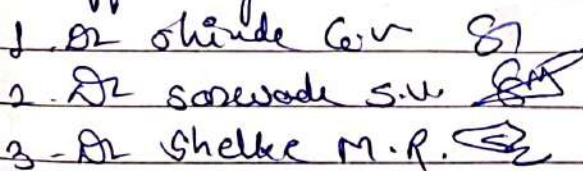 1. Dr Shinde G.V
2. Dr Sarwade S.U.
3 - Dr Shelke M.R.